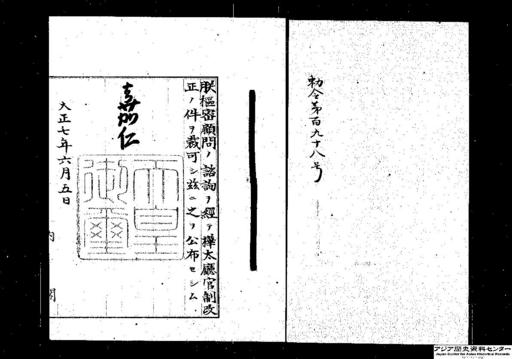 勅令第百九十八号
朕樞密顧問ノ諮詢ヲ經テ樺太廳官制改
正ノ件ヲ裁可シ玆ニ之ヲ公布セシム
嘉仁
天皇
御璽
大正七年六月五日
内閣
アジア歴史資料センター
Japan Center for Asian Historical Records